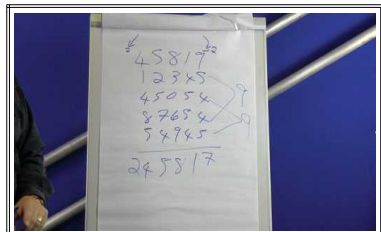 2 -2
45819
12345
45054
87654 9
54945 9
245817